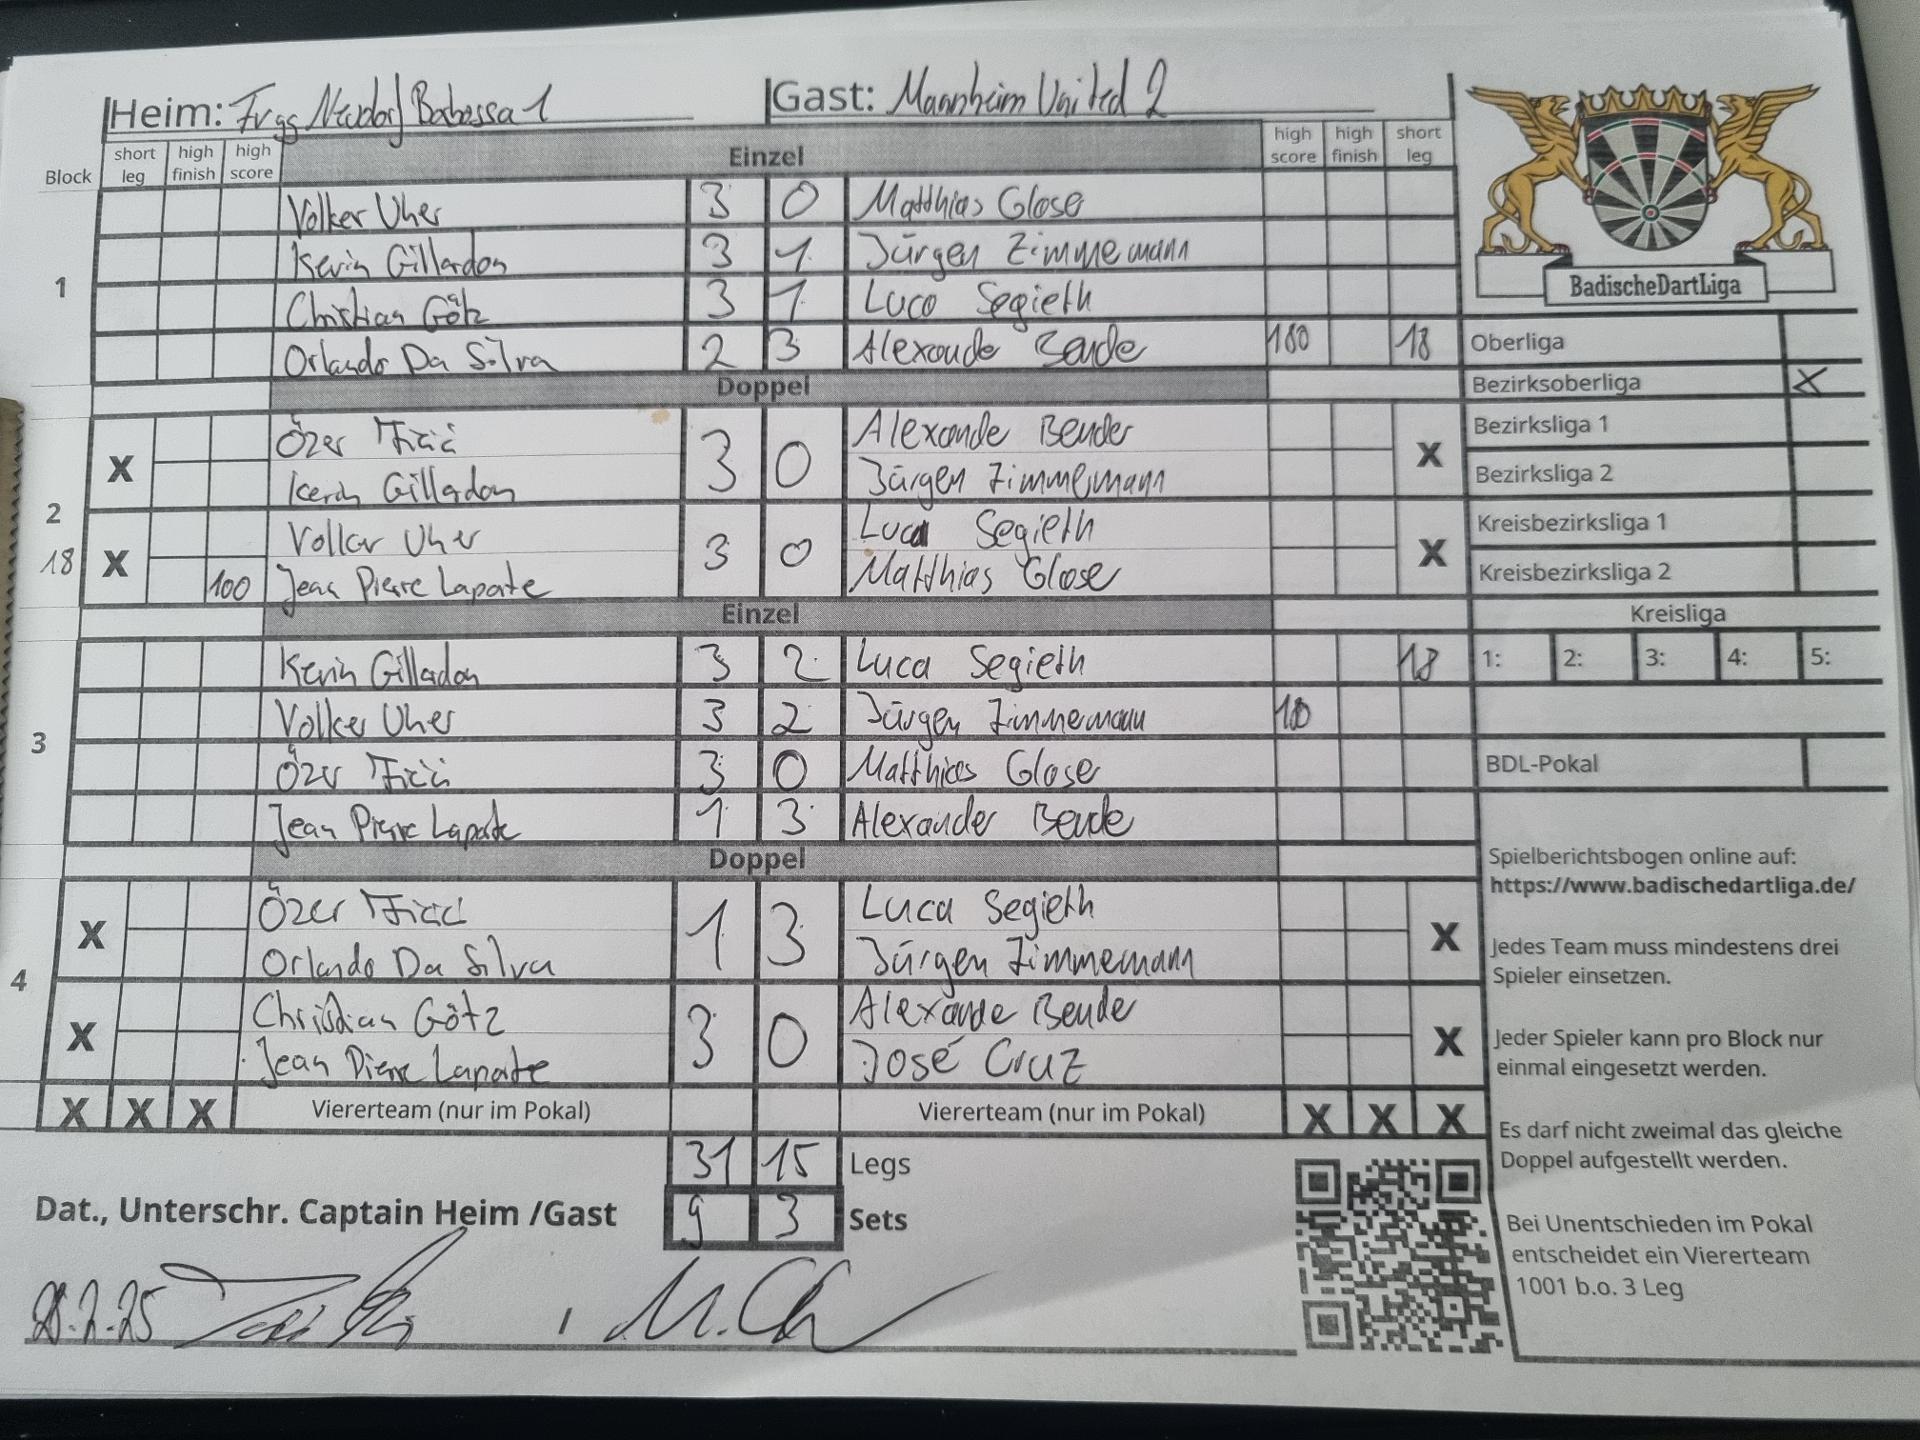 Heim: Gast: Mannheim United 2
Block short leg high finish high score Einzel high score high finish short leg
1
Volker Uher 3 0 Matthias Glose
Kevin Gillardon 3 1 Jürgen Zimmemann
Christian Götz 3 1 Luca Segieth
Orlando Da Silva 2 3 Alexande Bende 180 18
Doppel
2
X Özer 3 0 Alexande Bender X
Kevin Gillardon Jürgen Zimmermann
18 X Volker Uher 3 0 Luca Segieth X
100 Jean Pierre Laporte Matthias Glose
Einzel
3
Kevin Gillardon 3 2 Luca Segieth 18
Volker Uher 3 2 Jürgen Zimmemann
Özer 3 0 Matthias Glose
Jean Pierre Laporte 1 3 Alexander Bende
Doppel
4
X Özer 1 3 Luca Segieth X
Orlando Da Silva Jürgen Zimmemann
X Christian Götz 3 0 Alexande Bende X
Jean Pierre Laporte José Cruz
X X X Viererteam (nur im Pokal) Viererteam (nur im Pokal) X X X
31 15 Legs
9 3 Sets
Dat., Unterschr. Captain Heim /Gast
28.2.25
BadischeDartLiga
Oberliga
Bezirksoberliga X
Bezirksliga 1
Bezirksliga 2
Kreisbezirksliga 1
Kreisbezirksliga 2
Kreisliga
1: 2: 3: 4: 5:
BDL-Pokal
Spielberichtsbogen online auf:
https://www.badischedartliga.de/
Jedes Team muss mindestens drei
Spieler einsetzen.
Jeder Spieler kann pro Block nur
einmal eingesetzt werden.
Es darf nicht zweimal das gleiche
Doppel aufgestellt werden.
Bei Unentschieden im Pokal
entscheidet ein Viererteam
1001 b.o. 3 Leg